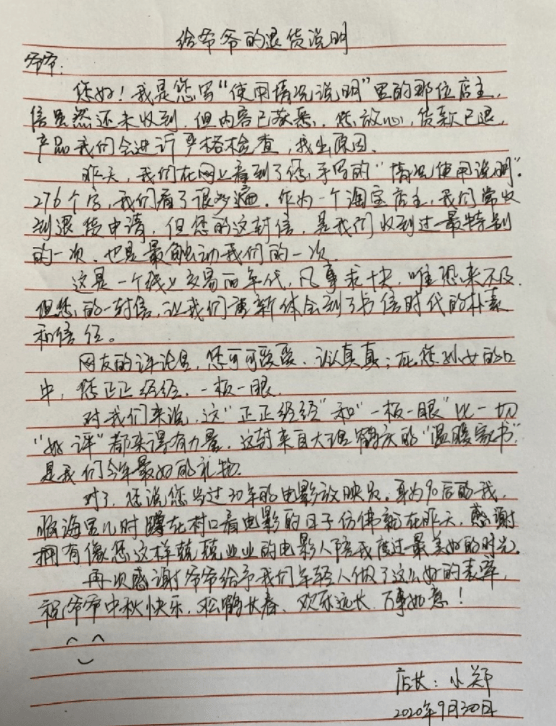 给爷爷的退货说明
爷爷:
您好!我是您写"使用情况说明"里的那位店主,
信虽然还未收到,但内容已获悉,您放心,货款已退,
产品我们会进行严格检查,找出原因。
昨天,我们在网上看到了您手写的"情况使用说明".
276个字,我们看了很多遍.作为一个淘宝店主,我们常收
到退货申请,但您的这封信,是我们收到过最特别
的一次,也是最触动我们的一次.
这是一个线上交易的年代,凡事求快,唯恐来不及.
但您的一封信,让我们重新体会到了书信时代的朴素
和信任。
网友的评论里,您可可爱爱、认认真真;在您孙女的口
中,您正正经经、一板一眼.
对我们来说,这"正正经经"和"一板一眼"比一切
"好评"都来得有力量,这封来自大理鹤庆的"温暖家书"
是我们今年最好的礼物.
对了,您说您当过30年的电影放映员,身为90后的我,
脑海里儿时蹲在村口看电影的日子仿佛就在昨天,感谢
拥有像您这样兢兢业业的电影人陪我度过最美好的时光.
再次感谢爷爷给予我们年轻人做了这么好的表率,
祝爷爷中秋快乐,松鹤长春、欢乐远长、万事如意!
店长:小郑
2020年9月30日